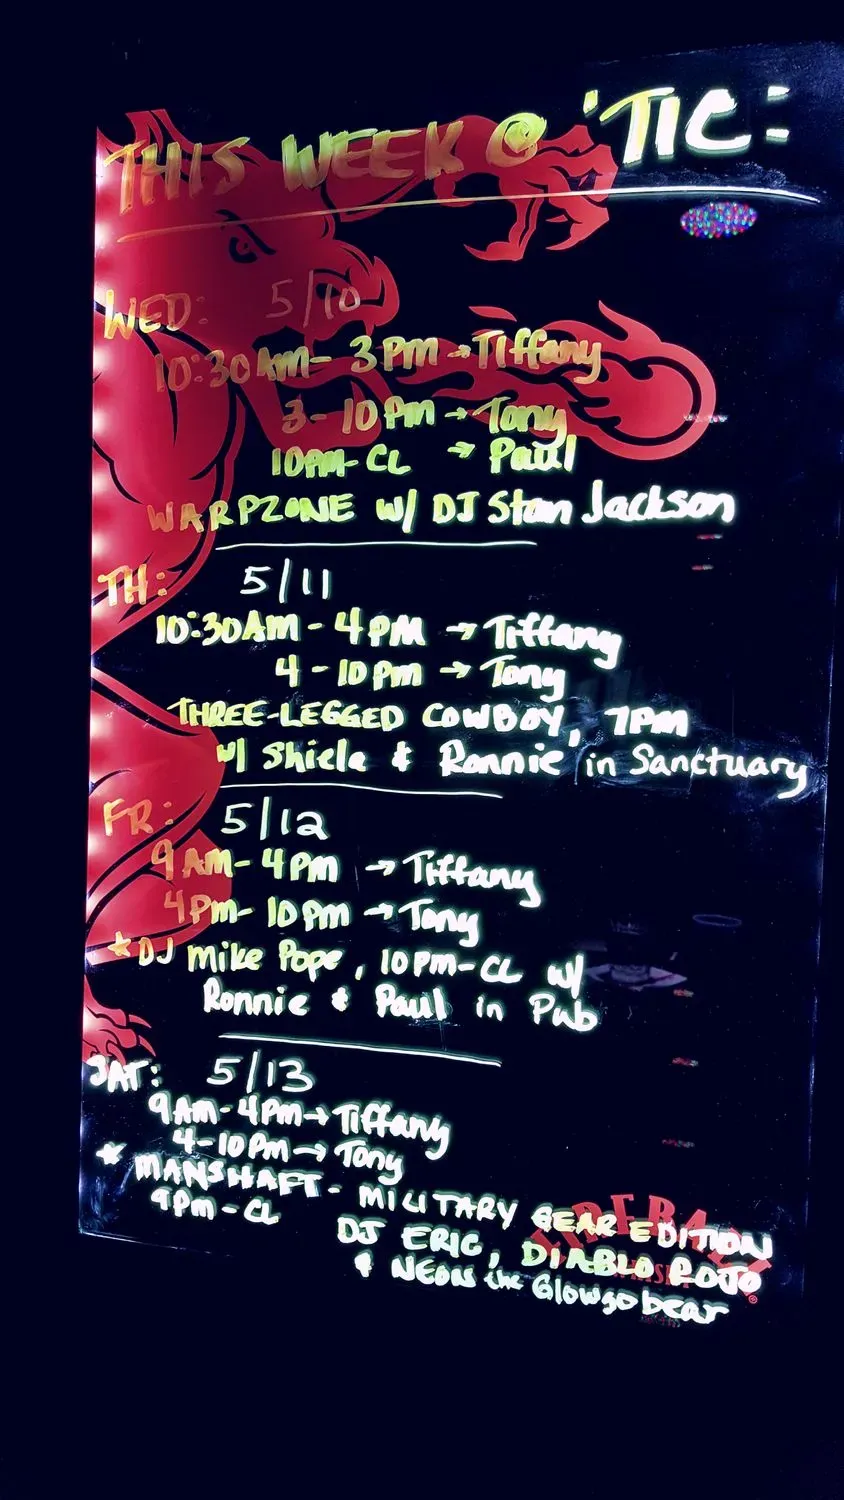 THIS WEEK @ 'TIC:
WED: 5/10
10:30AM - 3PM → Tiffany
3 - 10PM → Tony
10PM - CL → Paul
WARPZONE w/ DJ Stan Jackson
TH: 5/11
10:30AM - 4PM → Tiffany
4 - 10PM → Tony
THREE-LEGGED COWBOY, 7PM
w/ Shiela & Ronnie in Sanctuary
FR: 5/12
9AM - 4PM → Tiffany
4PM - 10PM → Tony
* DJ Mike Pope, 10PM - CL w/
Ronnie & Paul in Pub
SAT: 5/13
9AM - 4PM → Tiffany
4 - 10PM → Tony
* MANSHAFT - MILITARY GEAR EDITION
9PM - CL DJ ERIC, DIABLO ROJO
& NEON the Glowgobear
FIREBALL